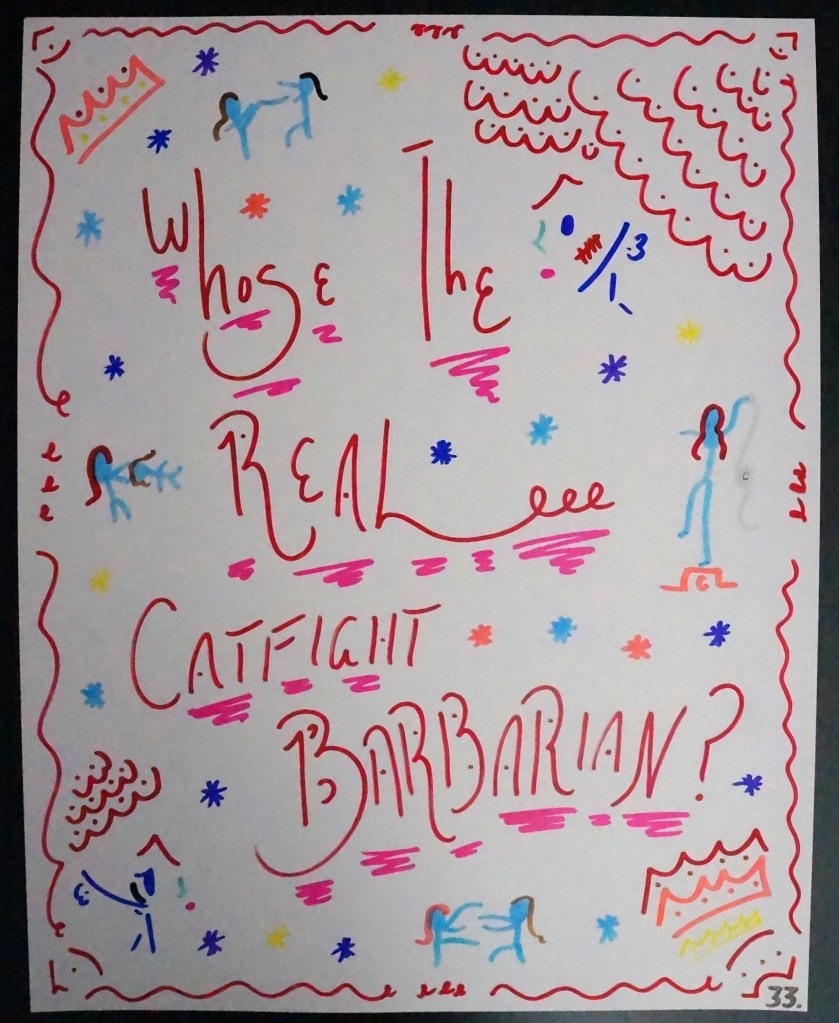 Whose The
REAL
CATFIGHT
BARBARIAN?
33.